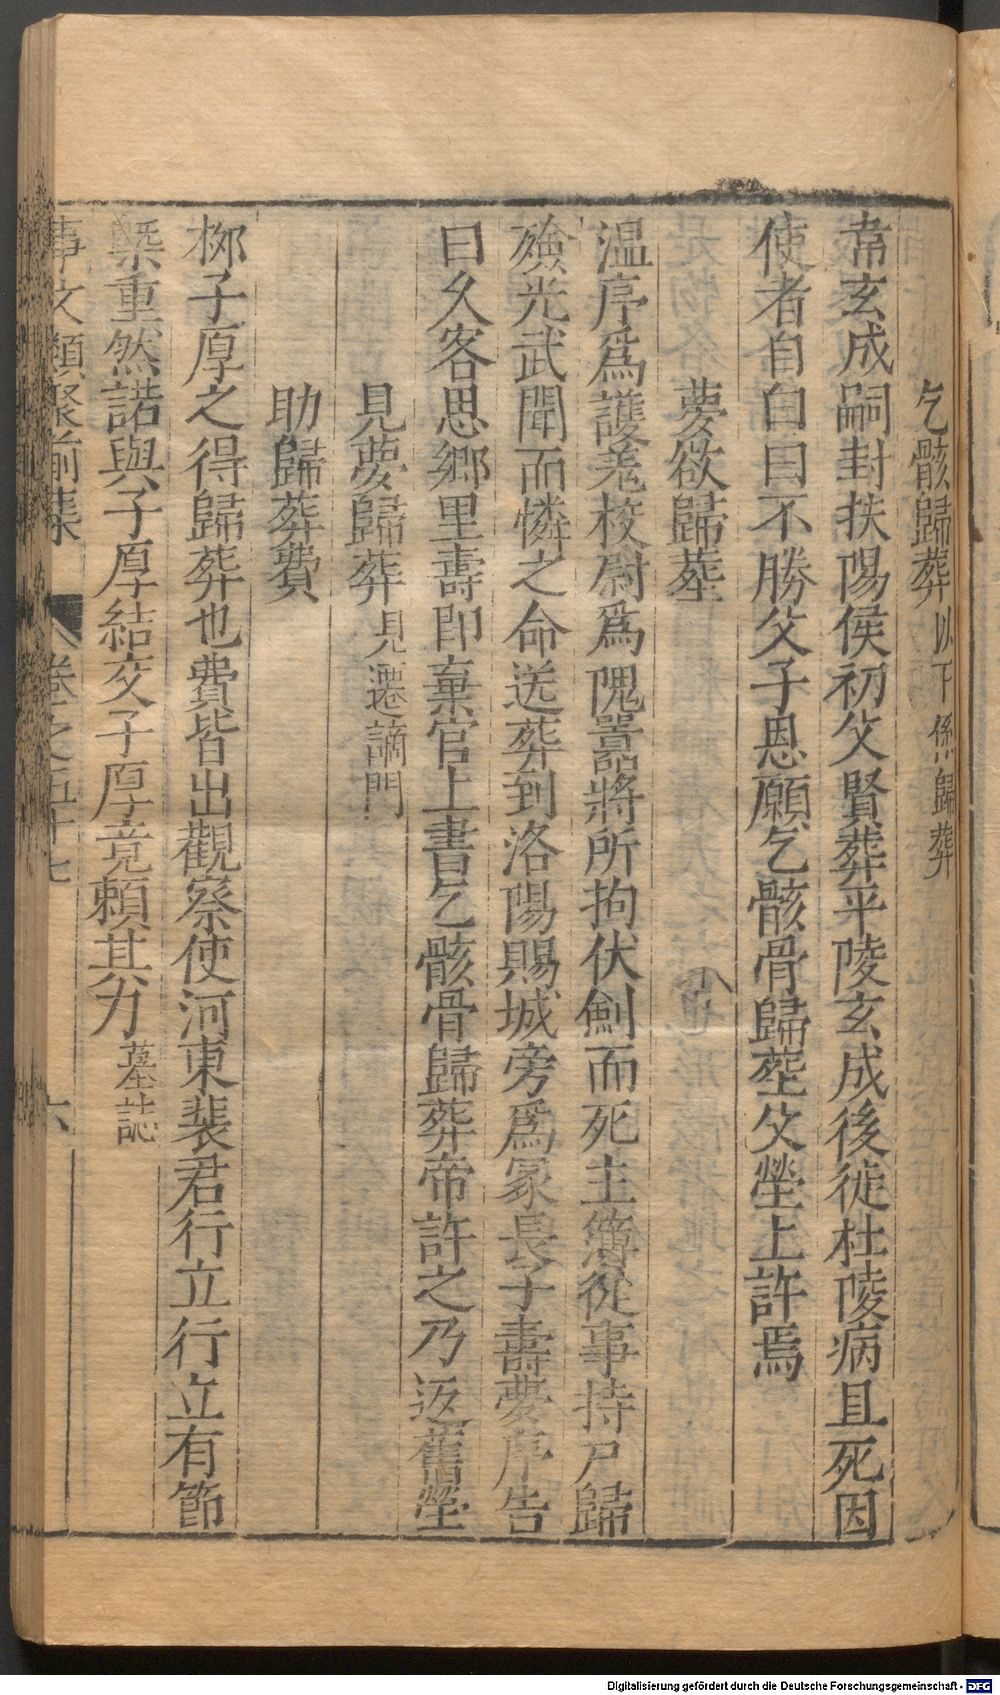 乞骸歸葬以下係歸葬
韋玄成嗣封扶陽侯初父賢葬平陵玄成後徙杜陵病且死因
使者自白曰不勝父子恩願乞骸骨歸塟父塋上許焉
夢欲歸塟
温序爲護羗校尉爲隗囂將所拘伏劍而死主簿從事持尸歸
殮光武聞而憐之命送葬到洛陽賜城旁爲冢長子壽夢序告
曰久客思鄉里壽即棄官上書乞骸骨歸葬帝許之乃返舊塋
見夢歸葬見遷謫門
助歸葬費
柳子厚之得歸葬也費皆出觀察使河東裴君行立行立有節
槩重然諾與子厚結交子厚竟賴其力墓誌
事文類聚前集 卷之五十七 六
Digitalisierung gefördert durch die Deutsche Forschungsgemeinschaft - DFG